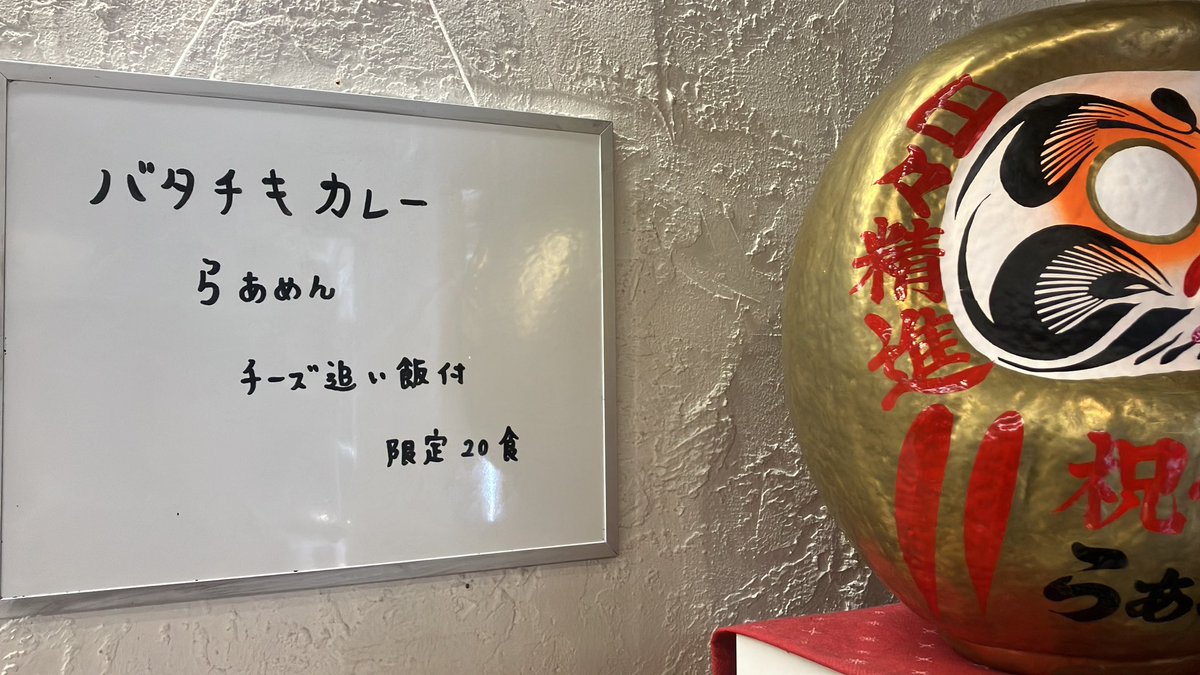 バタチキカレー
らあめん
チーズ追い飯付
限定20食
日々精進
祝
らあ